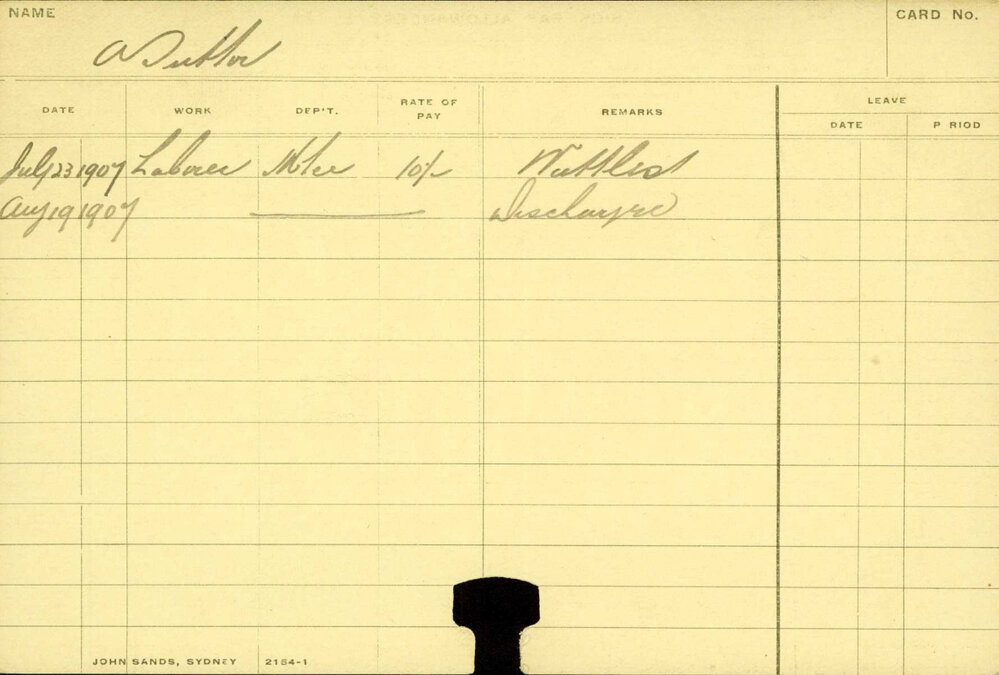 NAME
CARD No.
A
DATE
WORK
DEP'T.
RATE OF PAY
REMARKS
LEAVE
DATE
P RIOD
July 23 1907 Laborer 10/-
Aug 19 1907 Discharged
JOHN SANDS, SYDNEY 2154-1